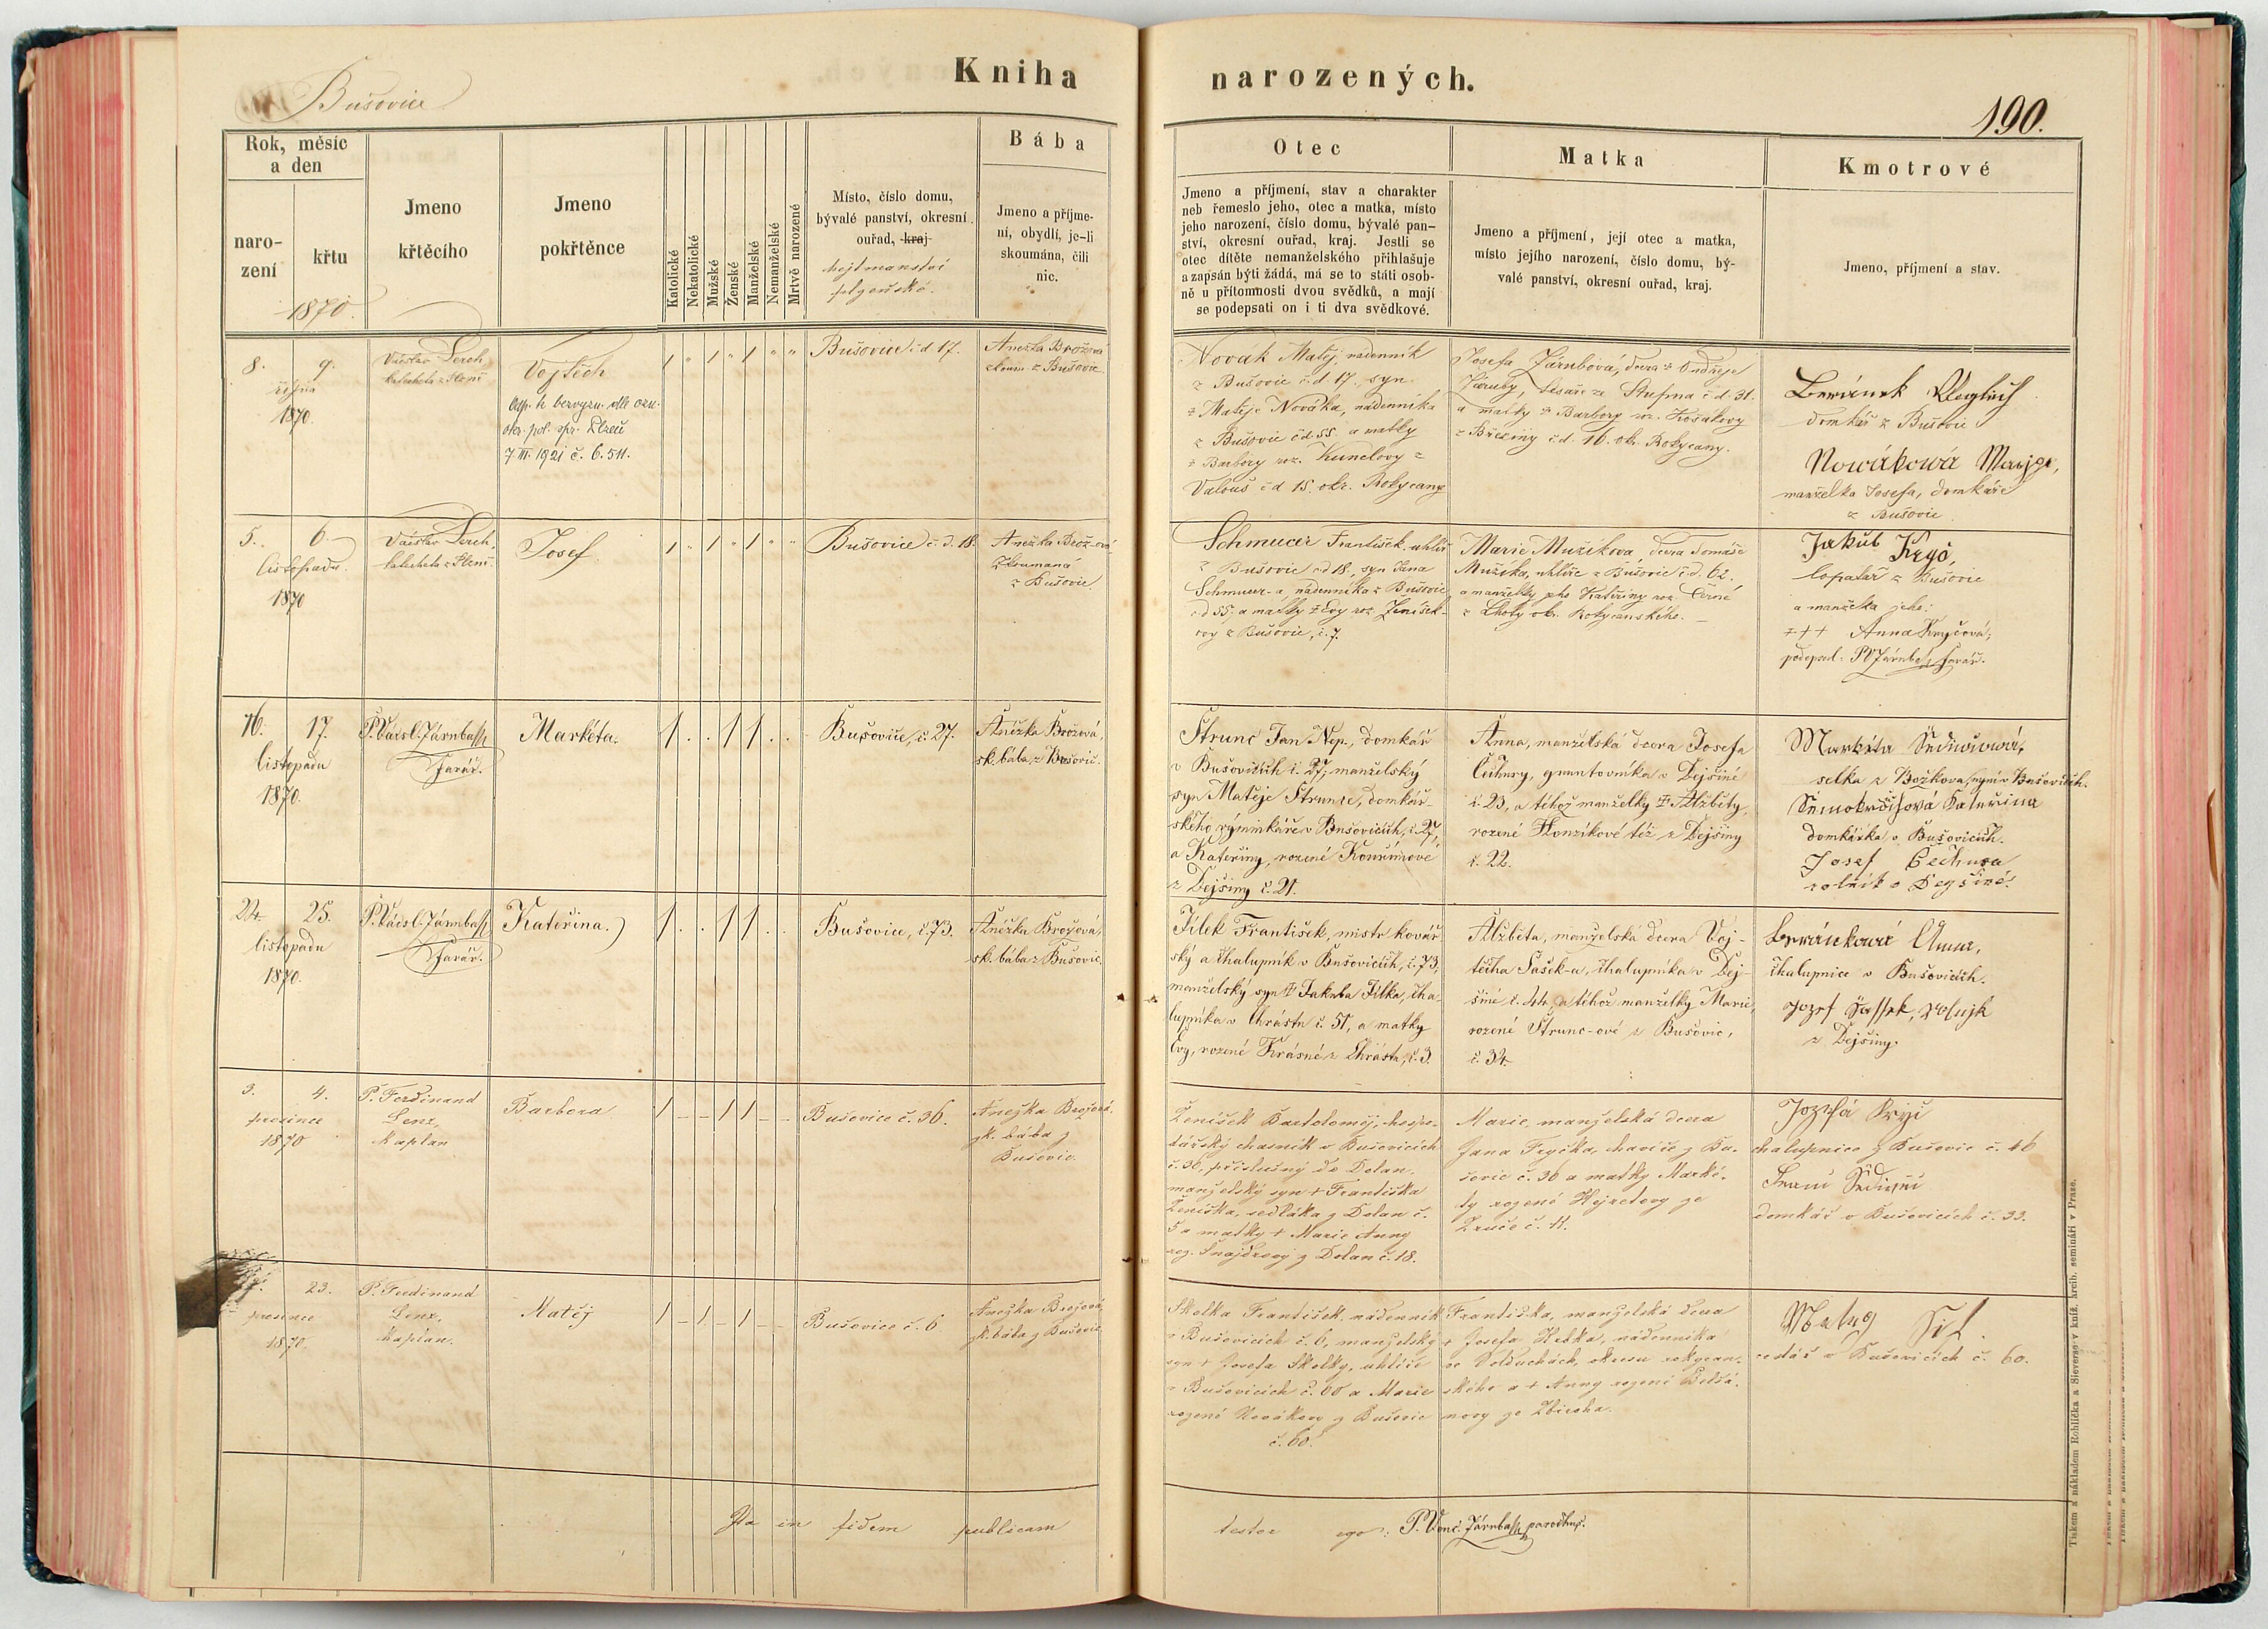 Bušovice
Kniha narozených.
190.
Rok, měsíc
a den
naro-
zení
křtu
1870.
Jmeno
křtěcího
Jmeno
pokřtěnce
Katolické
Nekatolické
Mužské
Ženské
Manželské
Nemanželské
Mrtvě narozené
Místo, číslo domu,
bývalé panství, okresní
ouřad, kraj
hejtmanství
plzeňské.
Bába
Jmeno a příjme-
ní, obydlí, je-li
skoumána, čili
nic.
Otec
Jmeno a příjmení, stav a charakter
neb řemeslo jeho, otec a matka, místo
jeho narození, číslo domu, bývalé pan-
ství, okresní ouřad, kraj. Jestli se
otec dítěte nemanželského přihlašuje
a zapsán býti žádá, má se to státi osob-
ně u přítomnosti dvou svědků, a mají
se podepsati on i ti dva svědkové.
Matka
Jmeno a příjmení, její otec a matka,
místo jejího narození, číslo domu, bý-
valé panství, okresní ouřad, kraj.
Kmotrové
Jmeno, příjmení a stav.
8. 9.
října
1870.
Václav Lerch,
Vojtěch
7. III. 1921 č. 6.511.
1 " 1 " 1 " "
Bušovice č d. 17.
Anežka Brožová
z Bušovic
Novák Matěj, nádenník
z Bušovic č.d 17., syn
† Matěje Nováka, nádenníka
z Bušovic č d 55. a matky
† Barbory roz. Kunclovy z
Valouš č d 15. okr. Rokycany
Josefa Járnbová, dcera † Ondřeje
a matky † Barbory roz.
z Březiny č.d. 16. okr. Rokycany.
Beránek
domkář z Bušovic
Nowákowá
manželka Josefa, domkáře
z Bušovic
5. 6.
listopadu
1870
Václav Lerch,
Josef
1 " 1 " 1 " "
Bušovice č. d. 18.
Anežka Brož-ová
zkoumaná
z Bušovic
Schmucer František, uhlíř
z Bušovic č d 18., syn Jana
Schmucr-a, nádenníka z Bušovic
č d 55, a matky † Evy roz. Ženíšek-
ovy z Bušovic, č. 7.
Marie Mužíkova dcera Tomáše
Mužíka, uhlíře z Bušovic č.d. 62.
a manželky jeho Kateřiny roz. Černé
z Lhoty okr. Rokycanského.
Jakub
z Bušovic
a manželka jeho:
+++ Anna Kryčová;
podepsal: P V Járnba, farář.
16. 17.
listopadu
1870.
P. Václ. Járnba,
farář.
Markéta.
1 . . 1 1 . .
Bušovice, č. 27.
Anežka Brožová,
sk. bába z Bušovic.
Štrunc Jan Nep., domkář
v Bušovicích č. 27, manželský
syn Matěje Štrunce, domkář-
ského výminkáře v Bušovicích, č. 27,
a Kateřiny, rozené Kouřimové
z Dejšiny č. 21.
Anna, manželská dcera Josefa
Čechury, gruntovníka v Dejšině
č. 23, a téhož manželky † Alžběty,
rozené Honzíkové též z Dejšiny
č. 22.
Markéta Šediwiowá,
selka z Božkova, nyní v Bušovicích.
Kateřina
domkářka v Bušovicích.
Josef Čechura
rolník v Dejšině.
24. 25.
listopadu
1870.
P. Václ. Járnba,
farář.
Kateřina.
1 . . 1 1 . .
Bušovice, č. 73.
Anežka Brožová,
sk. bába z Bušovic.
Jílek František, mistr kovář-
ský a chalupník v Bušovicích, č. 73,
manželský syn † Jakuba Jílka, cha-
lupníka v Chrástu č. 51, a matky
Evy, rozené Krásné z Chrástu, č. 3.
Alžběta, manželská dcera Voj-
těcha Šašek-a, chalupníka v Dej-
šině č. 44, a téhož manželky Marie,
rozené Štrunc-ové z Bušovic,
č. 34.
Beránkowá Anna,
chalupnice v Bušovicích.
Jozef Šassek, rolnjk
z Dejšiny.
3. 4.
prosince
1870
P. Ferdinand
Lenz,
kaplan
Barbora
1 – – 1 1 – –
Bušovice č. 36.
Anežka Brožová
zk. bába z
Bušovic.
Ženíšek Bartoloměj, hospo-
dářský chasník v Bušovicích
č. 36, příslušný do Dolan,
manželský syn † Františka
Ženíška, sedláka z Dolan č.
5 a matky † Marie Anny
roz. Šnajdrovy z Dolan č. 18.
Marie, manželská dcera
Jana Fryčka, havíře z Bu-
šovic č. 36 a matky Marké-
ty rozené Hejretovy ze
Zruče č. 11.
Jozefa Kryč
chalupnice z Bušovic č. 46
domkář v Bušovicích č. 33.
23.
prosince
1870.
P. Ferdinand
Lenz,
kaplan.
Matěj
1 – 1 – 1 – –
Bušovice č. 6
Anežka Brožová
zk. bába z Bušovic
Skolka František, nádenník
v Bušovicích č. 6, manželský
syn † Josefa Skolky, uhlíře
v Bušovicích č. 60 a Marie
rozené Novákovy z Bušovic
č. 60.
Františka, manželská dcera
† Josefa Hebka, nádenníka
ve Volduchách, okresu rokycan-
ského a † Anny rozené
ze Zbiroha.
Matěj
v Bušovicích č. 60.
Ita in fidem publicam
testor ego: P. Venc. Járnba, parochus.
Tiskem a nákladem Rohlíčka a Sieversa v kníž. arcib. semináři v Praze.